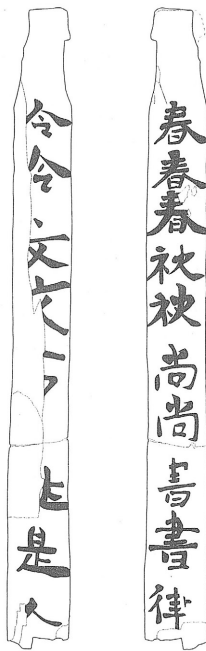 春春春秋秋尚尚書書律
令令文文是是人